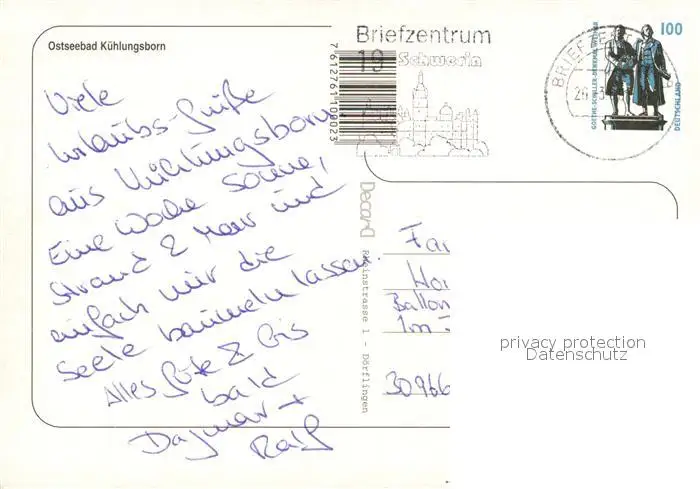 Ostseebad Kühlungsborn
Viele
Urlaubs-Grüße
aus Kühlungsborn
Eine Woche Sonne,
Strand & Meer und
einfach mir die
Seele baumeln lassen.
Alles Gute & bis
bald
Dagmar +
Ralf
7612761100023
Decard
Rheinstrasse 1 - Dörflingen
Briefzentrum
19 Schwerin
BRIEFZE
26
3
100
GOETHE-SCHILLER-DENKMAL WEIMAR
DEUTSCHLAND
Fa
Ballon
Im
30966
privacy protection
Datenschutz